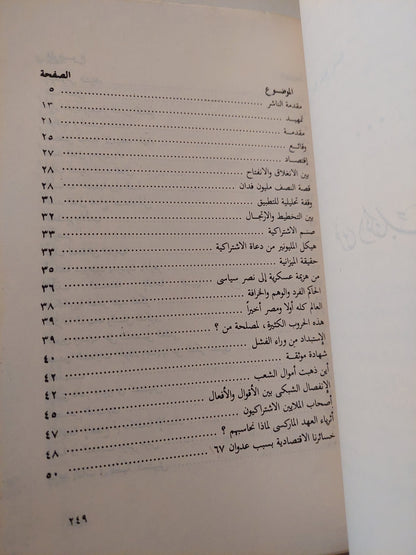 الموضوع الصفحة
مقدمة الناشر ٥
تمهيد ١٣
مقدمة ٢١
وقائع ٢٥
إقتصاد ٢٧
بين الانغلاق والانفتاح ٢٨
قصة النصف مليون فدان ٢٨
وقفة تحليلية للتطبيق ٣١
بين التخطيط والإرتجال ٣٢
صنم الاشتراكية ٣٣
هيكل المليونير من دعاة الاشتراكية ٣٣
حقيقة الميزانية ٣٥
من هزيمة عسكرية إلى نصر سياسى ٣٦
الحاكم الفرد والوهم والخرافة ٣٨
العالم كله أولا ومصر أخيراً ٣٩
هذه الحروب الكثيرة ، لمصلحة من ؟ ٣٩
الإستبداد من وراء الفشل ٤٠
شهادة موثقة ٤٢
أين ذهبت أموال الشعب ٤٢
الإنفصال الشبكى بين الأقوال والأفعال ٤٥
أصحاب الملايين الاشتراكيون ٤٧
أثرياء العهد الماركسى لماذا نحاسبهم ؟ ٤٨
خسائرنا الاقتصادية بسبب عدوان ٦٧ ٥٠
٢٤٩